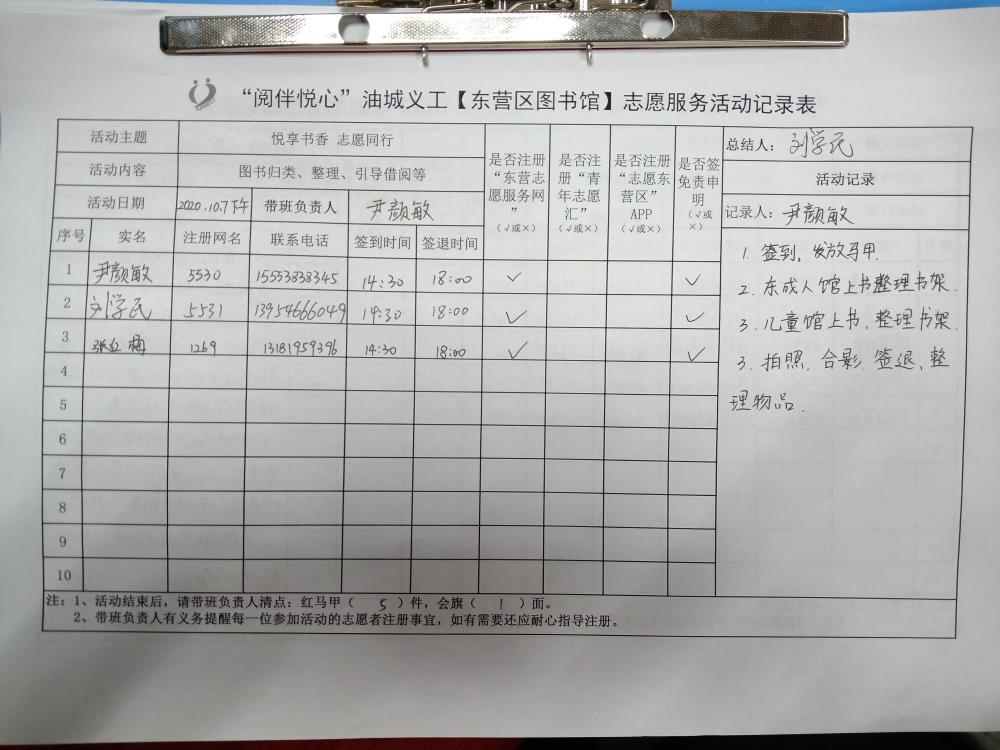 “阅伴悦心”油城义工【东营区图书馆】志愿服务活动记录表
活动主题 悦享书香 志愿同行
活动内容 图书归类、整理、引导借阅等
活动日期 2020.10.7下午 带班负责人 尹颜敏
序号 实名 注册网名 联系电话 签到时间 签退时间
是否注册
“东营志
愿服务网
”
（√或×）
是否注
册“青
年志愿
汇”
（√或×）
是否注册
“志愿东
营区”
APP
（√或×）
是否签
免责申
明
（√或
×）
1 尹颜敏 5530 15553838345 14:30 18:00 √ √
2 刘学民 5531 13954666049 14:30 18:00 √ √
3 张 梅 1269 13181959396 14:30 18:00 √ √
4
5
6
7
8
9
10
总结人：刘学民
活动记录
记录人：尹颜敏
1. 签到，发放马甲.
2. 东成人馆上书整理书架.
3. 儿童馆上书、整理书架.
3. 拍照、合影、签退、整
理物品.
注：1、活动结束后，请带班负责人清点：红马甲（ 5 ）件，会旗（ 1 ）面。
2、带班负责人有义务提醒每一位参加活动的志愿者注册事宜，如有需要还应耐心指导注册。